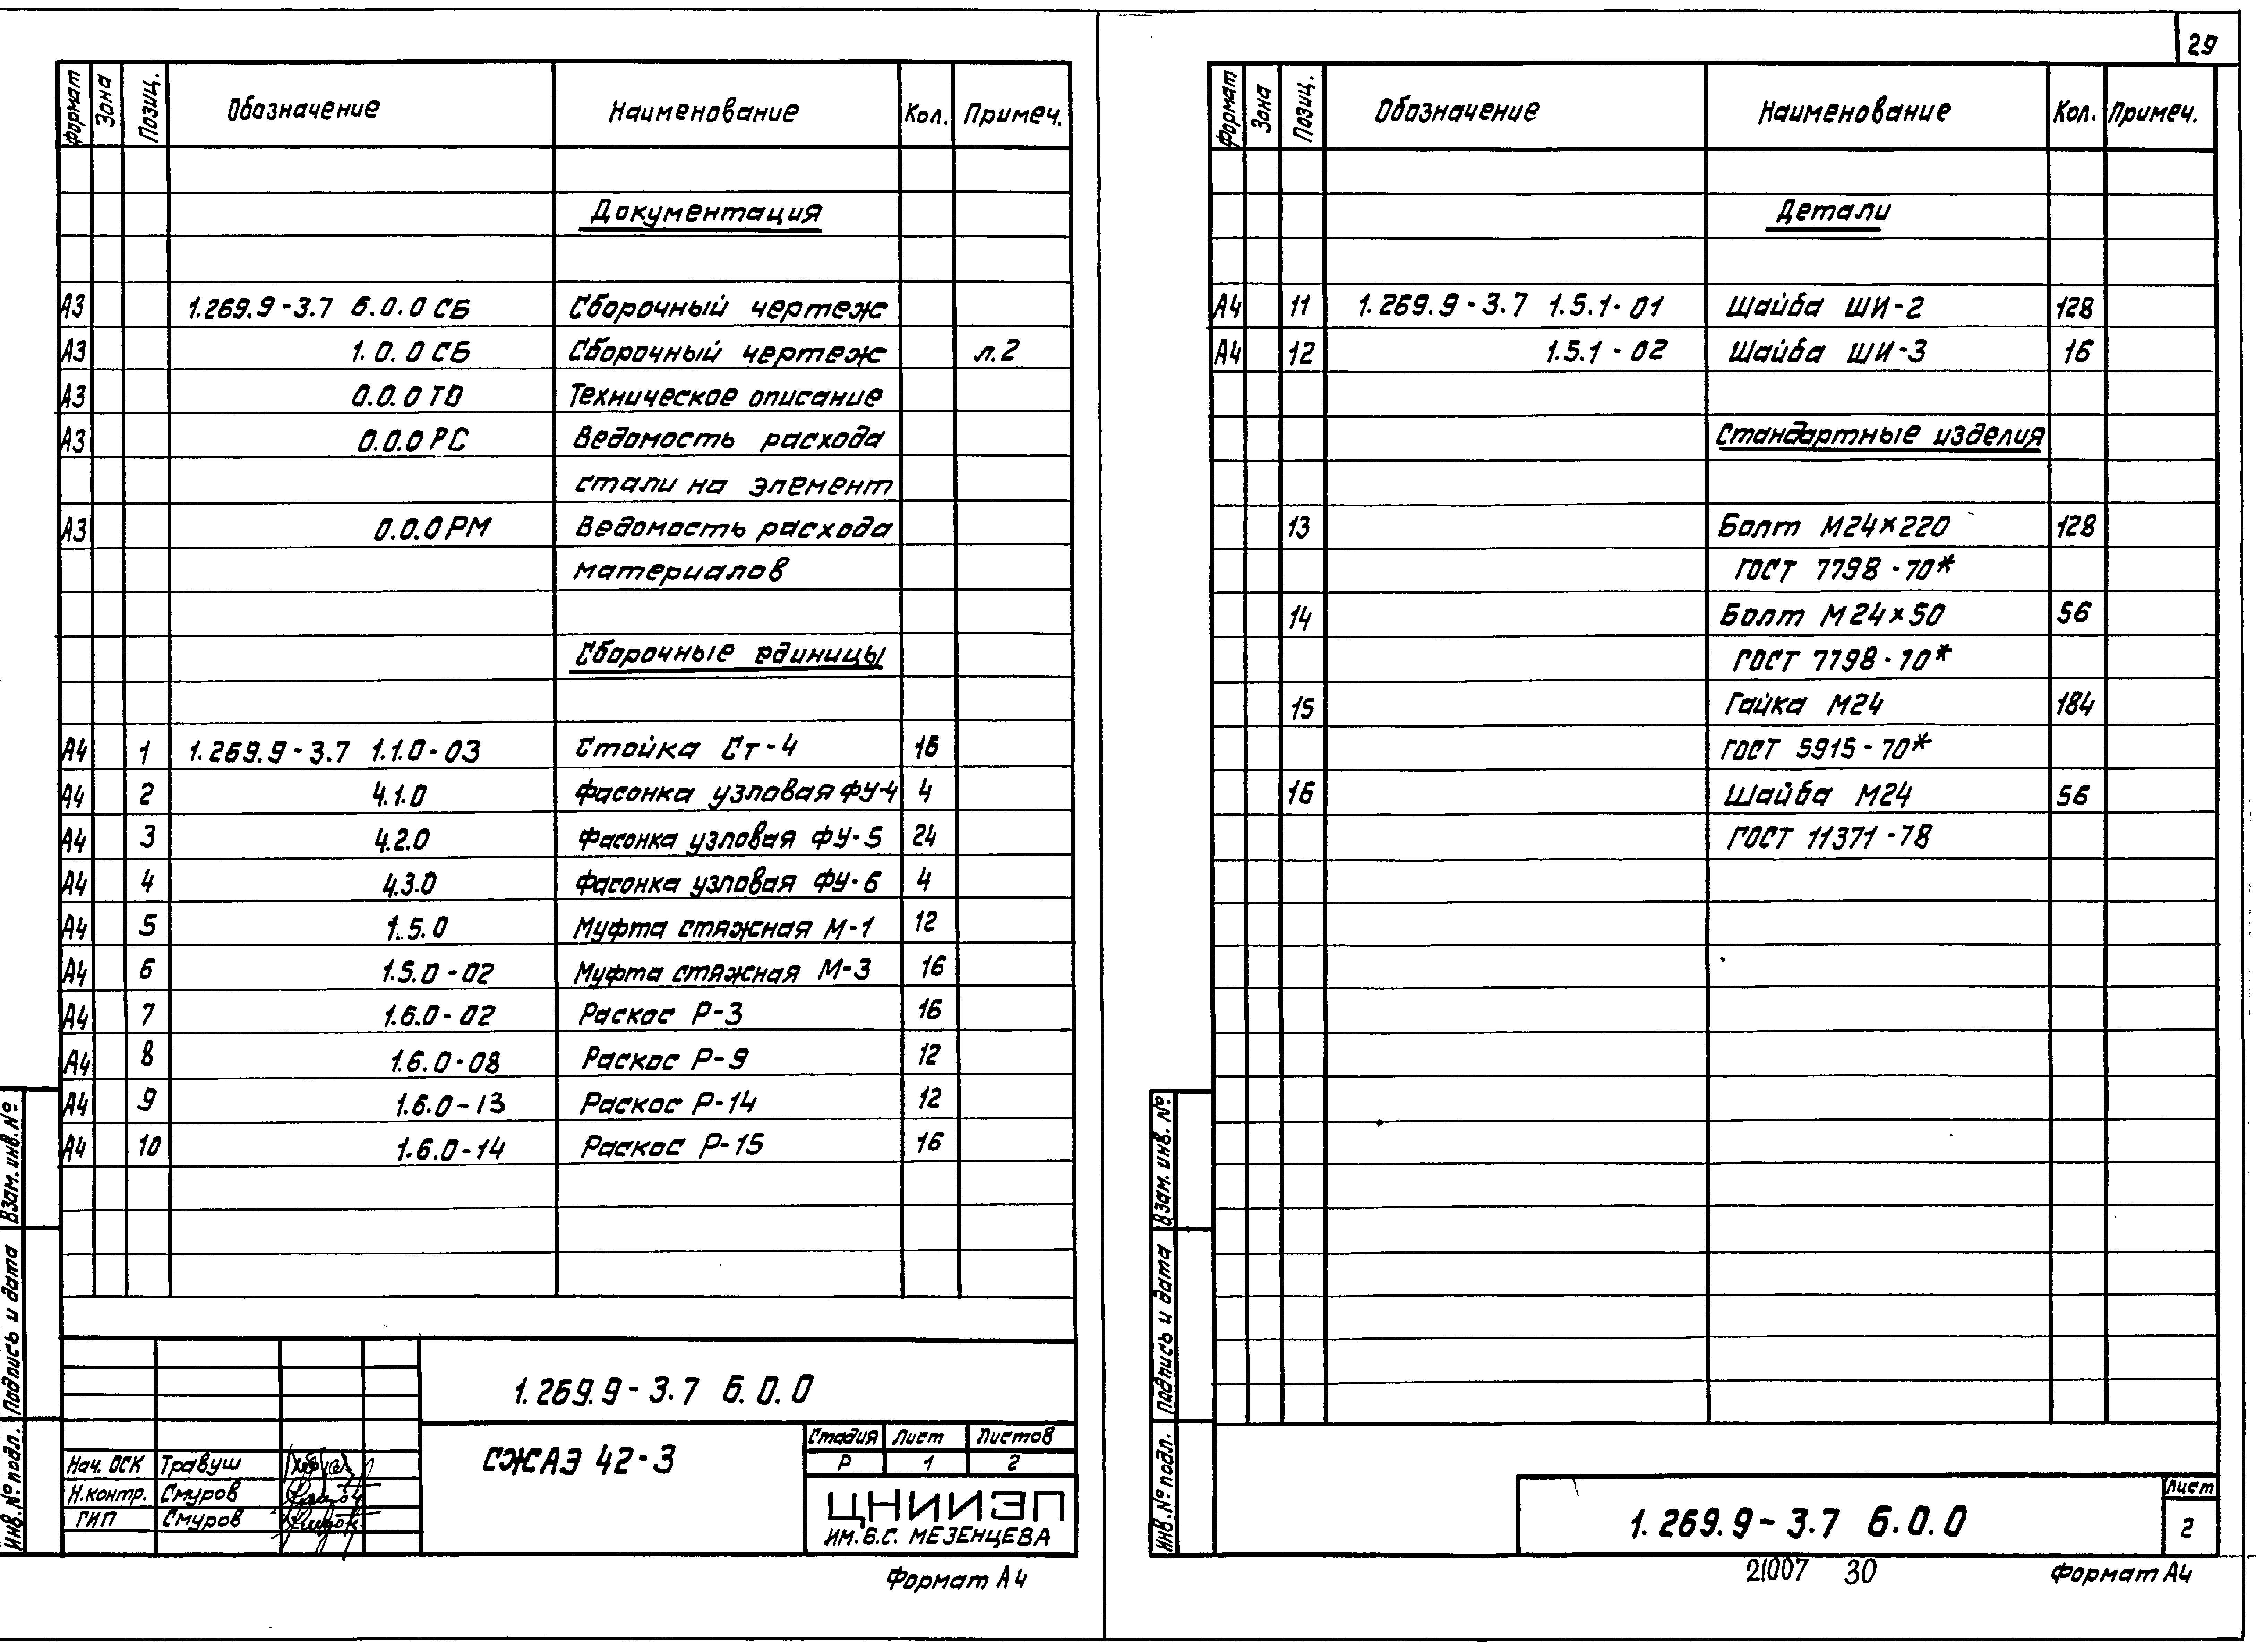 29
Формат Зона Позиц. Обозначение Наименование Кол. Примеч.
Документация
А3 1.269.9-3.7 6.0.0 СБ Сборочный чертеж
А3 1.0.0 СБ Сборочный чертеж л.2
А3 0.0.0 ТО Техническое описание
А3 0.0.0 РС Ведомость расхода
стали на элемент
А3 0.0.0 РМ Ведомость расхода
материалов
Сборочные единицы
А4 1 1.269.9-3.7 1.1.0-03 Стойка Ст-4 16
А4 2 4.1.0 Фасонка узловая ФУ-4 4
А4 3 4.2.0 Фасонка узловая ФУ-5 24
А4 4 4.3.0 Фасонка узловая ФУ-6 4
А4 5 1.5.0 Муфта стяжная М-1 12
А4 6 1.5.0-02 Муфта стяжная М-3 16
А4 7 1.6.0-02 Раскос Р-3 16
А4 8 1.6.0-08 Раскос Р-9 12
А4 9 1.6.0-13 Раскос Р-14 12
А4 10 1.6.0-14 Раскос Р-15 16
Взам. инв. №
Подпись и дата
Инв. № подл.
1.269.9-3.7 6.0.0
СЖАЭ 42-3
Стадия Лист Листов
Р 1 2
Нач. ОСК Травуш
Н.контр. Смуров
ГИП Смуров
ЦНИИЭП
ИМ. Б.С. МЕЗЕНЦЕВА
Формат А4
Формат Зона Позиц. Обозначение Наименование Кол. Примеч.
Детали
А4 11 1.269.9-3.7 1.5.1-01 Шайба ШИ-2 128
А4 12 1.5.1-02 Шайба ШИ-3 16
Стандартные изделия
13 Болт М24×220 128
ГОСТ 7798-70*
14 Болт М24×50 56
ГОСТ 7798-70*
15 Гайка М24 184
ГОСТ 5915-70*
16 Шайба М24 56
ГОСТ 11371-78
Взам. инв. №
Подпись и дата
Инв. № подл.
1.269.9-3.7 6.0.0
Лист
2
21007 30
Формат А4